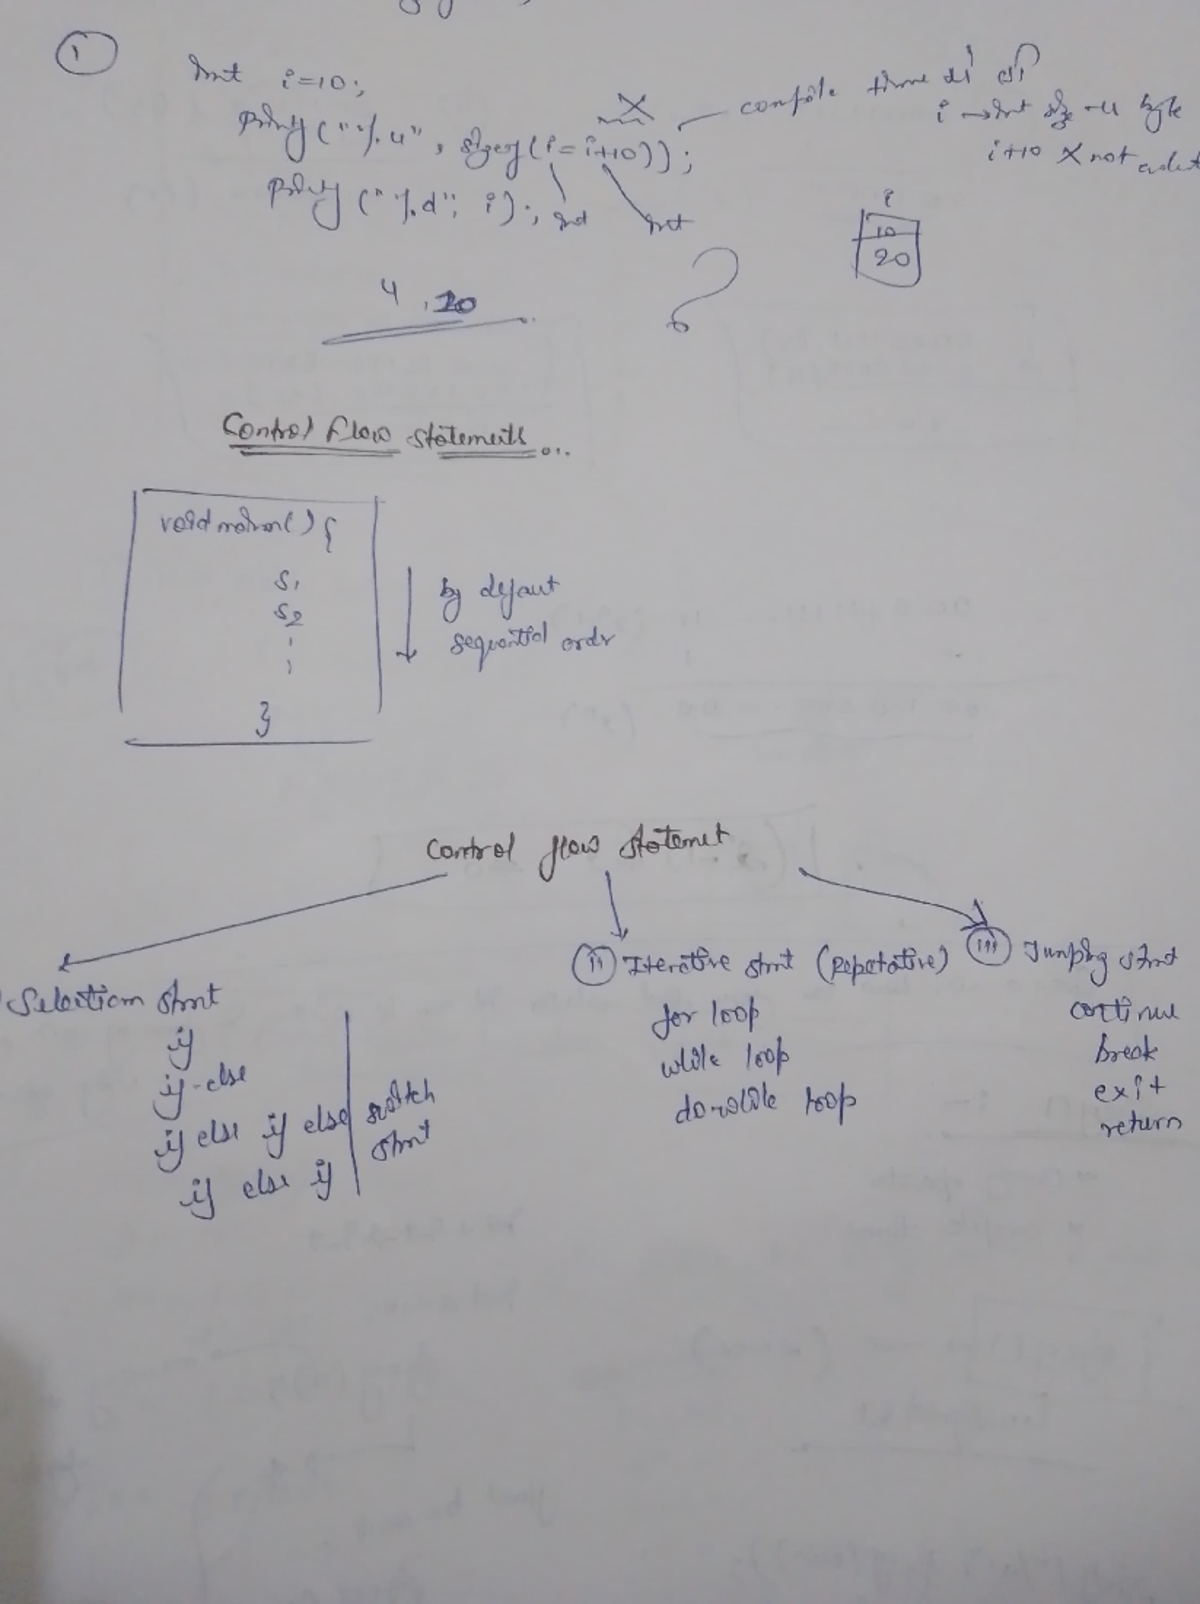 1
int i=10;
printf("%u", sizeof(i=i+10));
X
compile time
i → int size - 4 byte
i+10 X not
printf("%d", i);
int
int
i
10
20
4, 10
?
Control Flow statements...
void main() {
S1
S2
}
by defaut
sequential order
Control flow statemet
Selection stmt
if
if-else
if else if else
if else if
switch
stmt
ii Iterative stmt (Repetative)
for loop
while loop
dowhile loop
iii Jumping stmt
continue
break
exit
return